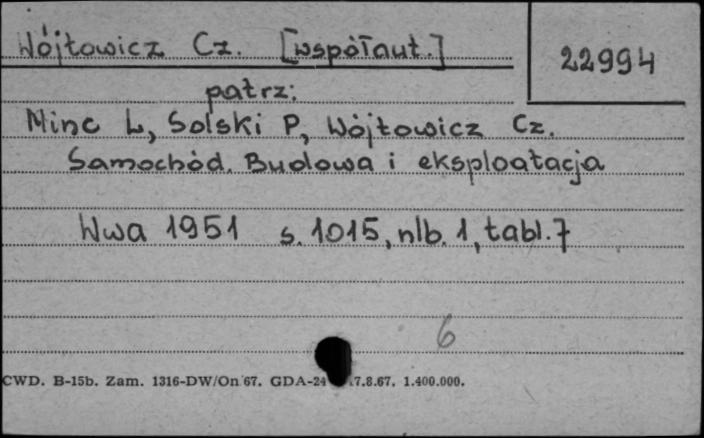 Wójtowicz Cz. [współaut.]
22994
patrz:
Minc L, Solski P, Wójtowicz Cz.
Samochód. Budowa i eksploatacja
Wwa 1951 s. 1015, nlb. 1, tabl. 7
6
CWD. B-15b. Zam. 1316-DW/On 67. GDA-24 7.8.67. 1.400.000.